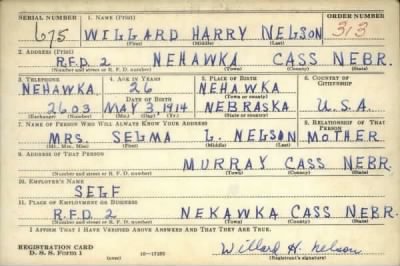 SERIAL NUMBER 1. NAME (Print) ORDER NUMBER
675 WILLARD HARRY NELSON 313
(First) (Middle) (Last)
2. ADDRESS (Print)
R.F.D. 2 NEHAWKA CASS NEBR.
(Town) (County) (State)
3. TELEPHONE 4. AGE IN YEARS 5. PLACE OF BIRTH 6. COUNTRY OF CITIZENSHIP
NEHAWKA 26 NEHAWKA
DATE OF BIRTH (Town or county)
2603 MAY 3, 1914 NEBRASKA U.S.A.
(Exchange) (Number) (Mo.) (Day) (Yr.) (State or country)
7. NAME OF PERSON WHO WILL ALWAYS KNOW YOUR ADDRESS 8. RELATIONSHIP OF THAT PERSON
MRS. SELMA L. NELSON MOTHER
(Mr., Mrs., Miss) (First) (Middle) (Last)
9. ADDRESS OF THAT PERSON
MURRAY CASS NEBR.
(Town) (County) (State)
10. EMPLOYER'S NAME
SELF
11. PLACE OF EMPLOYMENT OR BUSINESS
R.F.D. 2 NEKAWKA CASS NEBR.
(Town) (County) (State)
I AFFIRM THAT I HAVE VERIFIED ABOVE ANSWERS AND THAT THEY ARE TRUE.
REGISTRATION CARD
D. S. S. Form 1 (over) Willard H. Nelson
(Registrant's signature)